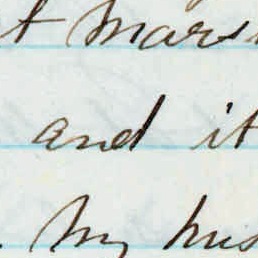 t mars
and it
My hus